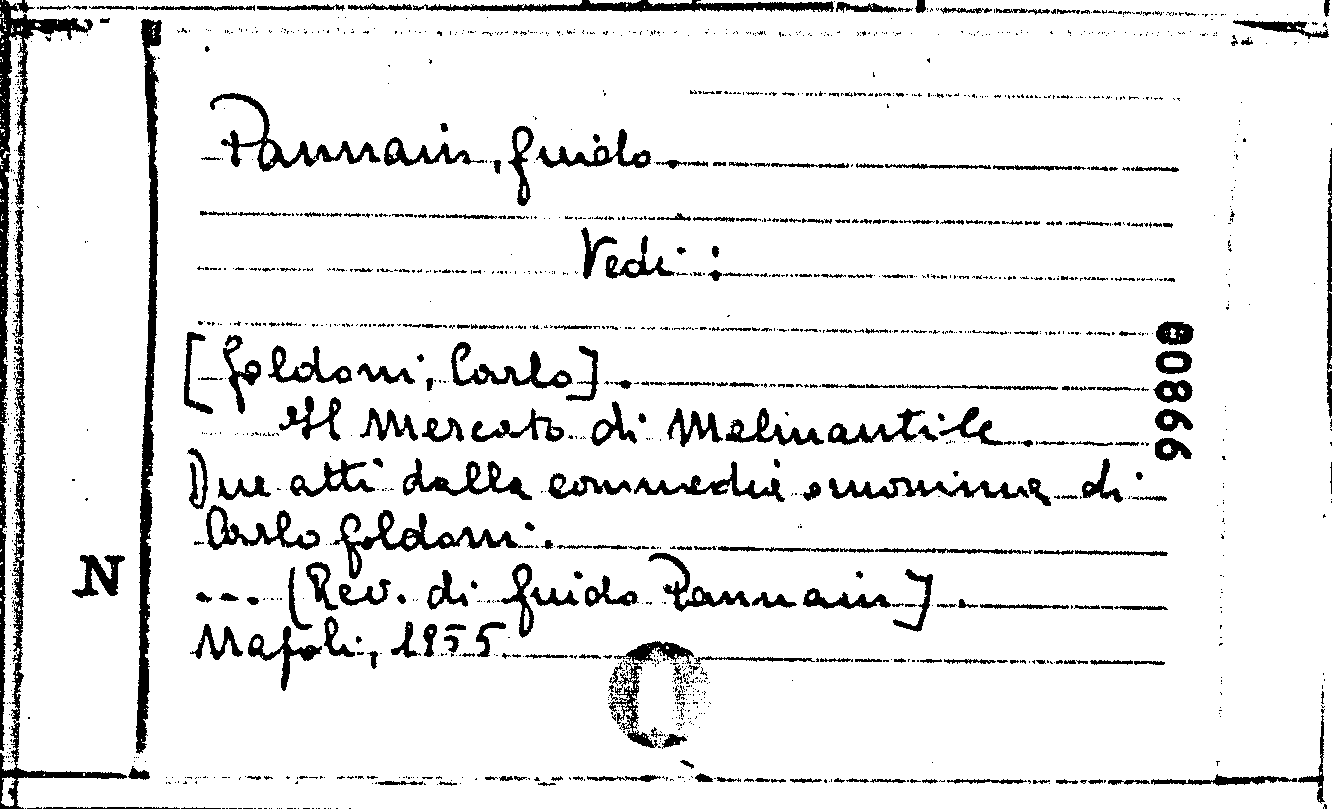 Pannain, Guido.
Vedi:
[Goldoni, Carlo].
Il Mercato di Malmantile.
Due atti dalla commedia omonima di
Carlo Goldoni.
... [Rev. di Guido Pannain].
Napoli, 1955
N
00866